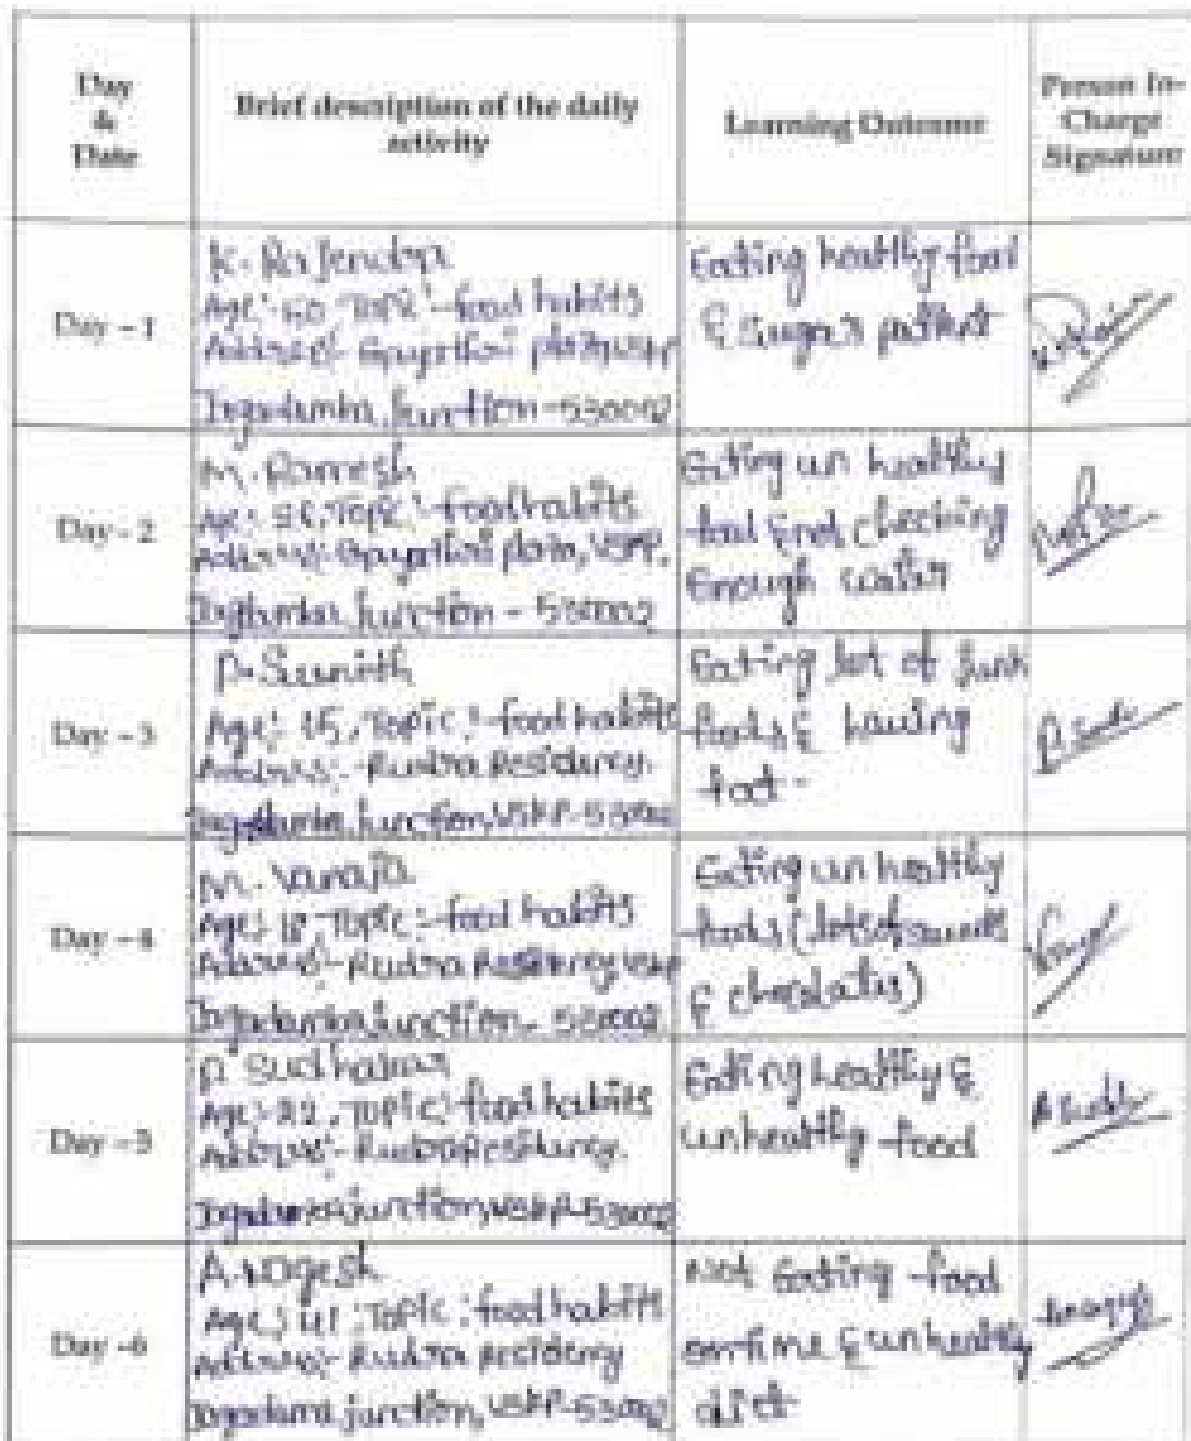 Day
&
Date
Brief description of the daily
activity
Learning Outcome
Person In-
Charge
Signature
Day - 1
K. Rajendra
Age:- 60 Topic:- food habits
Address:-
junction - 530002
Eating healthy food
& Sugar
Day - 2
M. Ramesh
Age: Topic:- food habits
Address:-
junction - 530002
Eating un healthy
food & not
Enough water
Day - 3
P. Sumith
Age: 15, Topic:- food habits
Address:- Rudra Residency.
junction, VSKP-530002
Eating lot of junk
foods & having
Day - 4
M. Vanaja
Age: 18, Topic:- food habits
Address:- Rudra Residency, VSKP
junction - 530002
Eating un healthy
foods (lots of sweets
& choclates)
Day - 5
P. Sudhakar
Age:- 22, Topic:- food habits
Address:- Rudra Residency.
junction, VSKP-530002
Eating healthy &
unhealthy food
Day - 6
A. Nagesh
Age: 41, Topic: food habits
Address:- Rudra Residency
junction, VSKP-530002
Not Eating food
on time & un healthy
diet